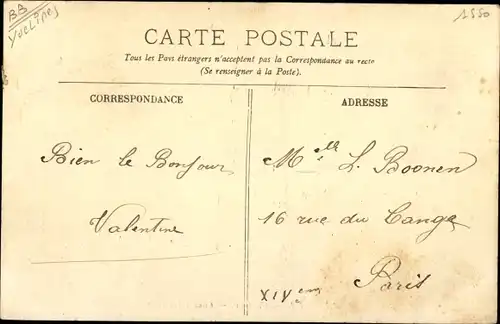 BB
Yvelines
1550
CARTE POSTALE
Tous les Pays étrangers n'acceptent pas la Correspondance au recto
(Se renseigner à la Poste).
CORRESPONDANCE
Bien le Bonjour
Valentine
ADRESSE
Melle L. Boonen
16 rue du Cange
Paris
XIVem